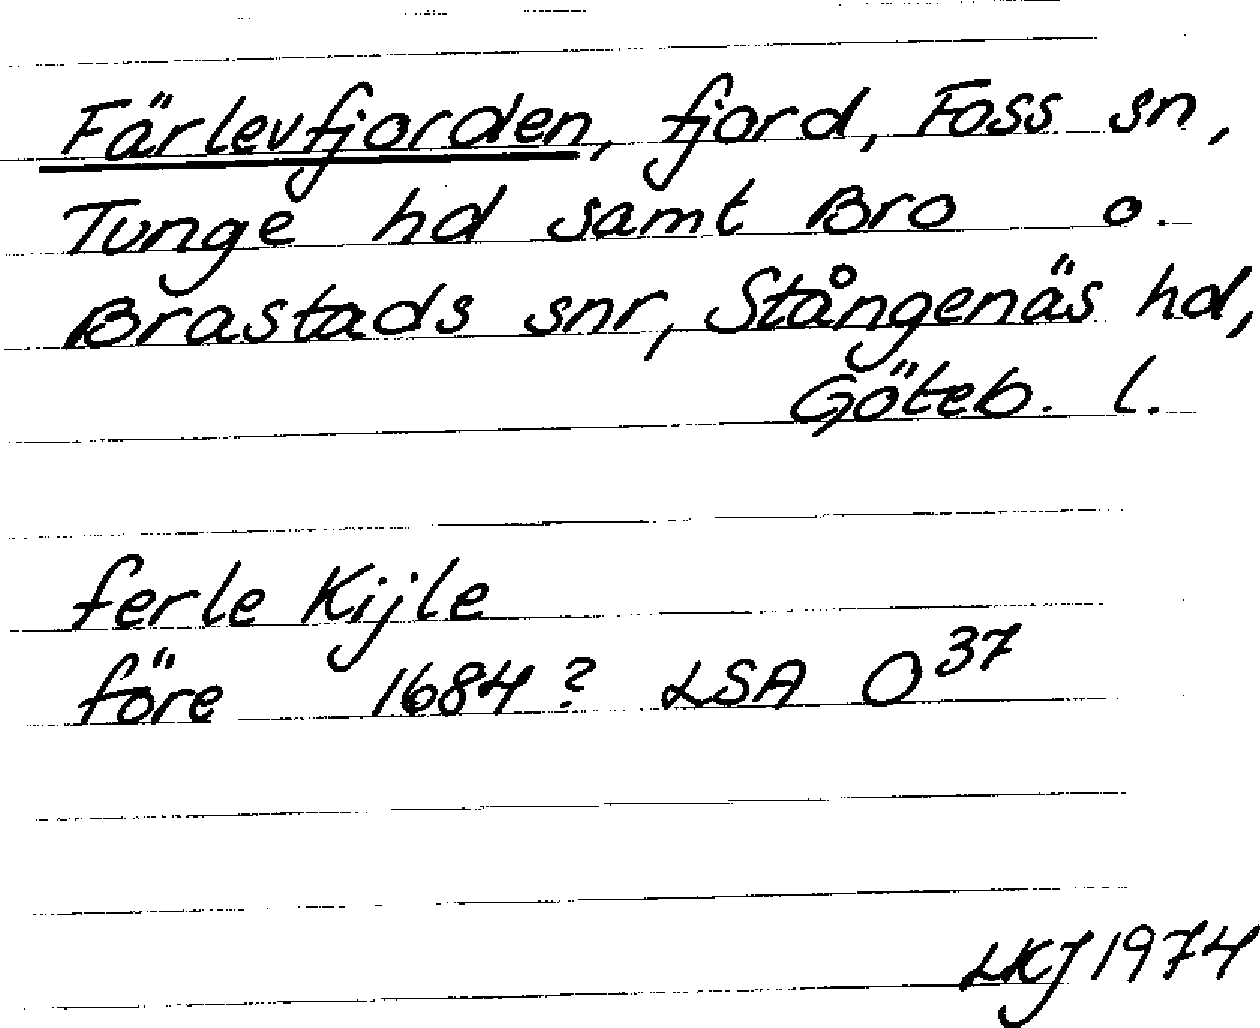 Färlevfjorden, fjord, Foss sn,
Tunge hd samt Bro o.
Brastads snr, Stångenäs hd,
Göteb. l.
ferle Kijle
före 1684? LSA O 37
LKJ 1974